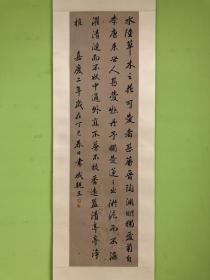 水陸草木之花可愛者甚蕃晉陶淵明獨愛菊自
李唐來世人甚愛牡丹予獨愛蓮之出淤泥而不染
濯清漣而不妖中通外直不蔓不枝香遠益清亭亭淨
植 嘉慶二年歲在丁巳春日書 成親王